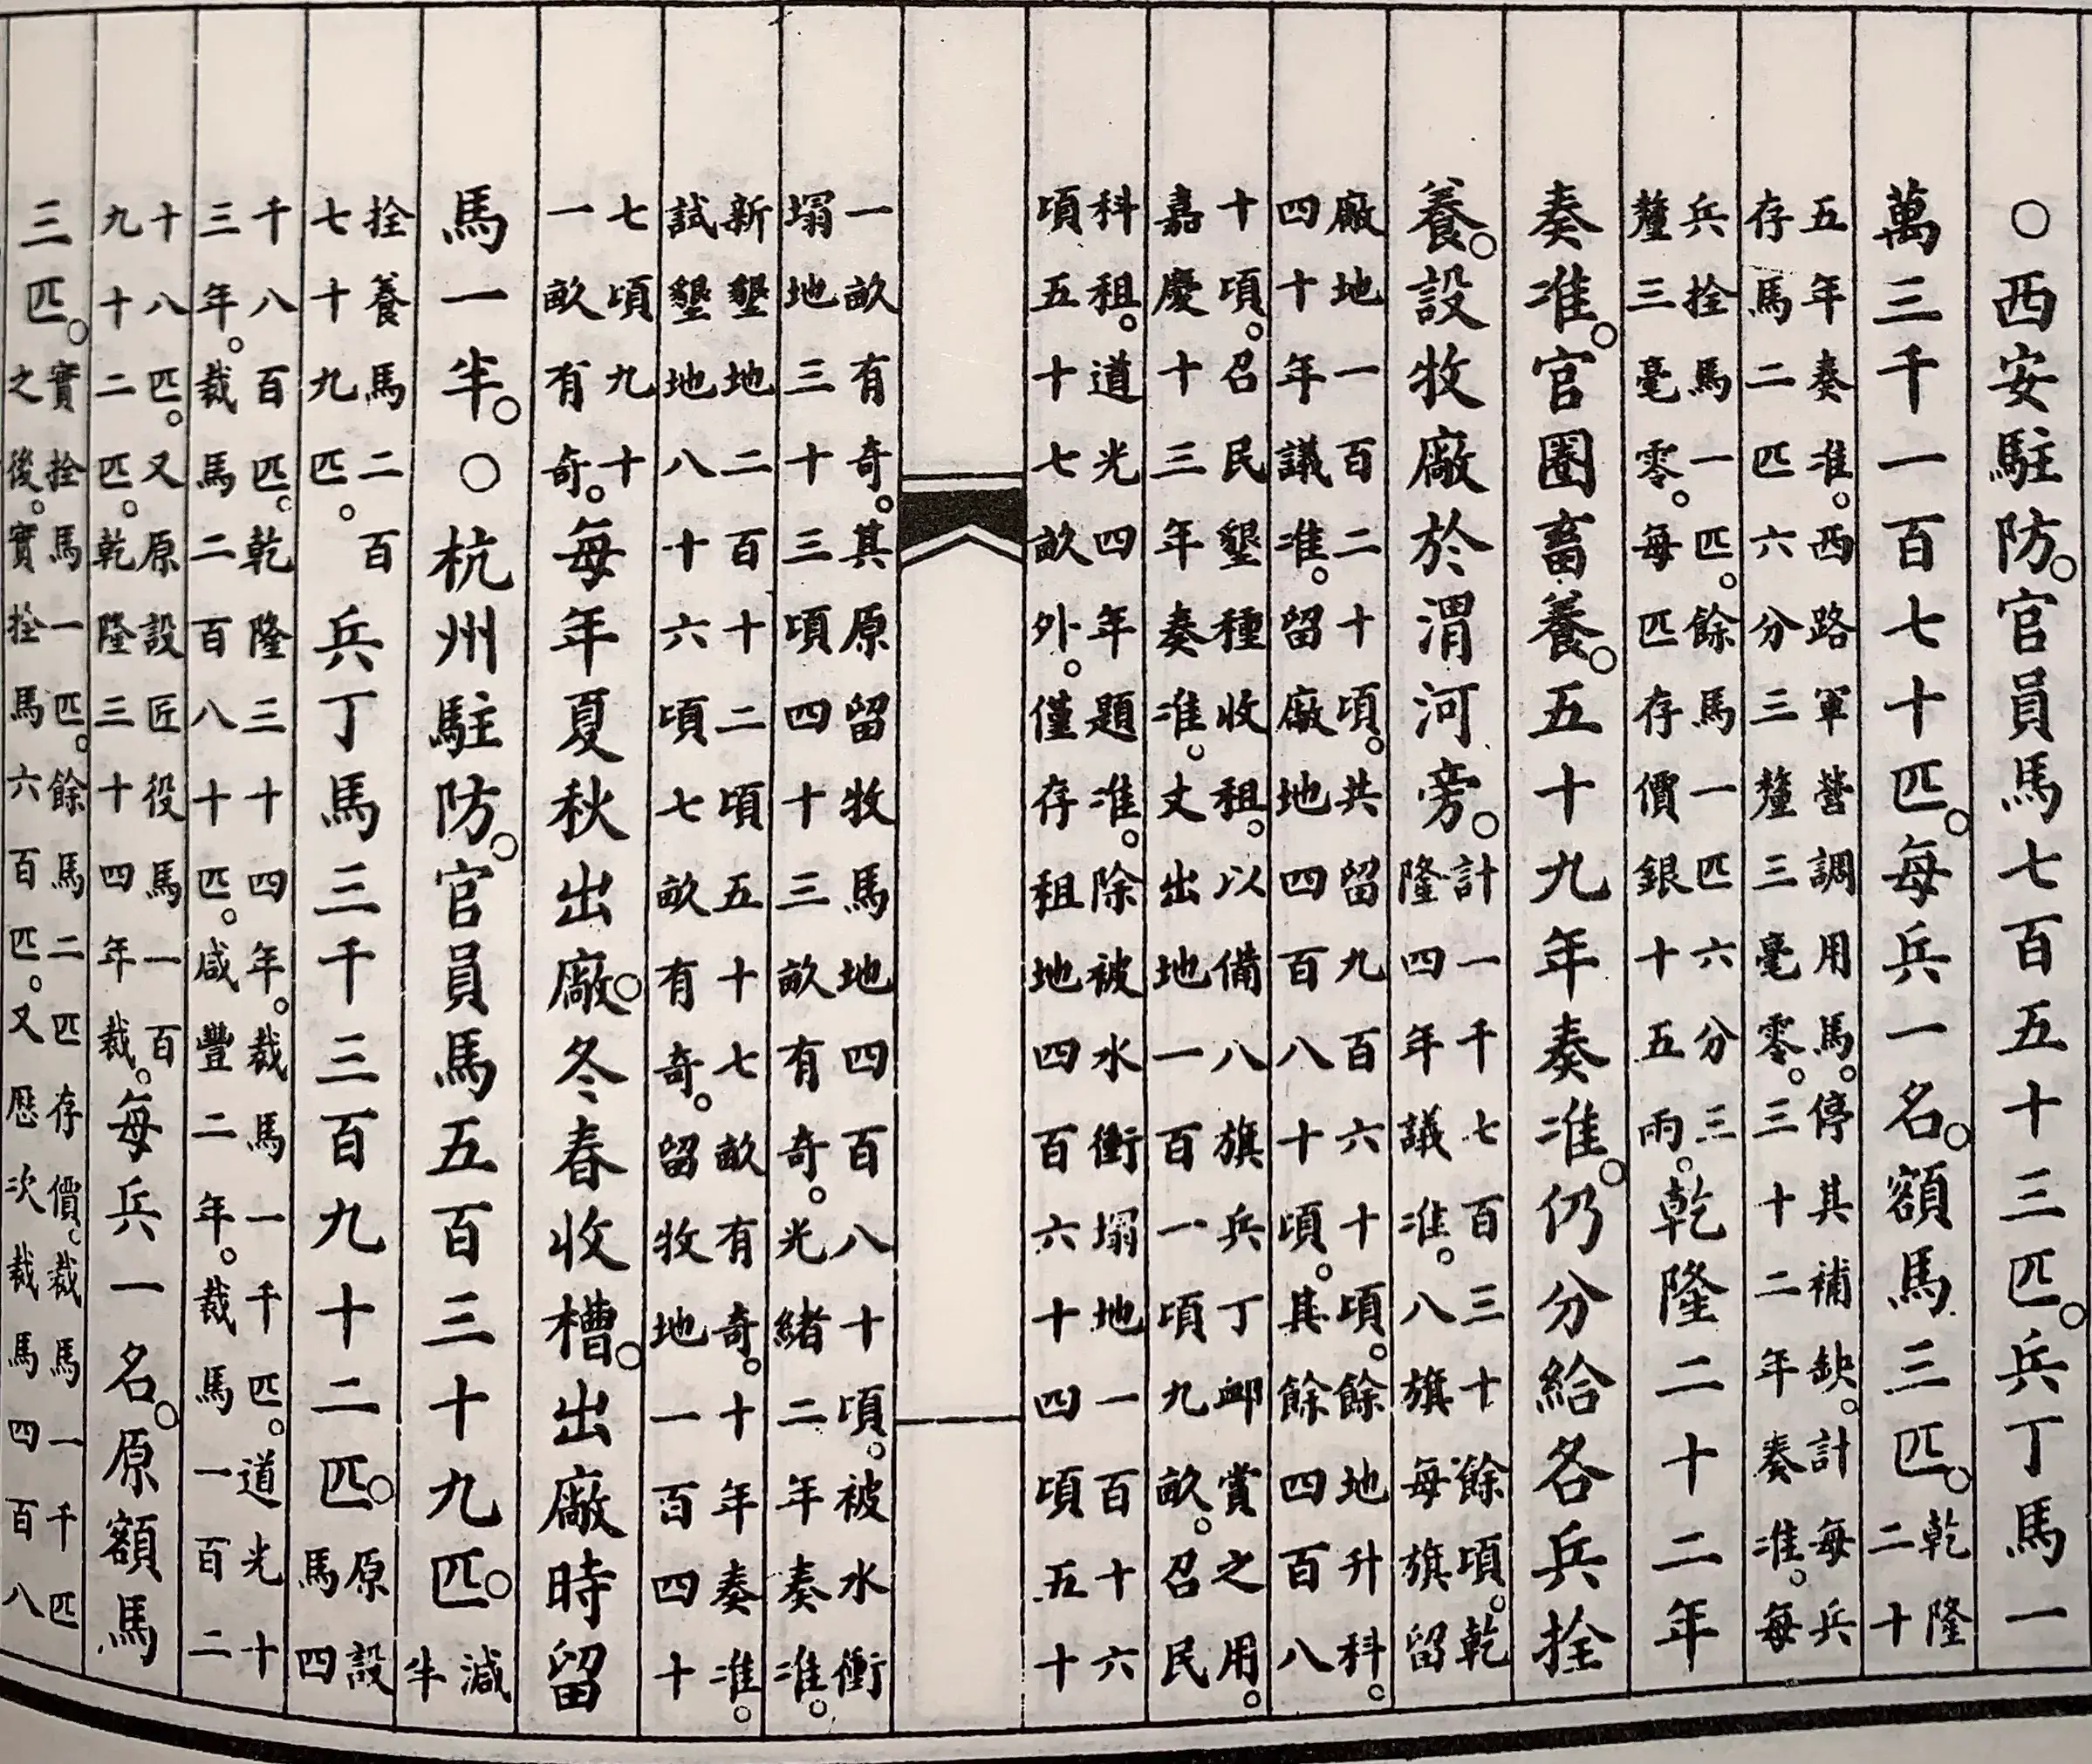 ○西安駐防。官員馬七百五十三匹。兵丁馬一
萬三千一百七十匹。每兵一名。額馬三匹。
乾隆
二十
五年奏准。西路軍營調用馬。停其補缺。計每兵
存馬二匹六分三釐三毫零。三十二年奏准。每
兵拴馬一匹。餘馬一匹六分三
釐三毫零。每匹存價銀十五兩。
乾隆二十二年
奏准。官圈畜養。五十九年奏准。仍分給各兵拴
養。設牧廠於渭河旁。
計一千七百三十餘頃。乾
隆四年議准。八旗每旗留
廠地一百二十頃。共留九百六十頃。餘地升科。
四十年議准。留廠地四百八十頃。其餘四百八
十頃。召民墾種收租。以備八旗兵丁卹賞之用。
嘉慶十三年奏准。丈出地一百一頃九畝。召民
科租。道光四年題准。除被水衝塌地一百十六
頃五十七畝外。僅存租地四百六十四頃五十
一畝有奇。其原留牧馬地四百八十頃。被水衝
塌地三十三頃四十三畝有奇。光緒二年奏准。
新墾地二百十二頃五十七畝有奇。十年奏准。
試墾地八十六頃七畝有奇。留牧地一百四十
七頃九十
一畝有奇。
每年夏秋出廠。冬春收槽。出廠時留
馬一半。○杭州駐防。官員馬五百三十九匹。
減
半
拴養馬二百
七十九匹。
兵丁馬三千三百九十二匹。
原設
馬四
千八百匹。乾隆三十四年。裁馬一千匹。道光十
三年。裁馬二百八十匹。咸豐二年。裁馬一百二
十八匹。又原設匠役馬一百
九十二匹。乾隆三十四年裁。
每兵一名。原額馬
三匹。
實拴馬一匹。餘馬二匹存價。裁馬一千匹
之後。實拴馬六百匹。又歷次裁馬四百八